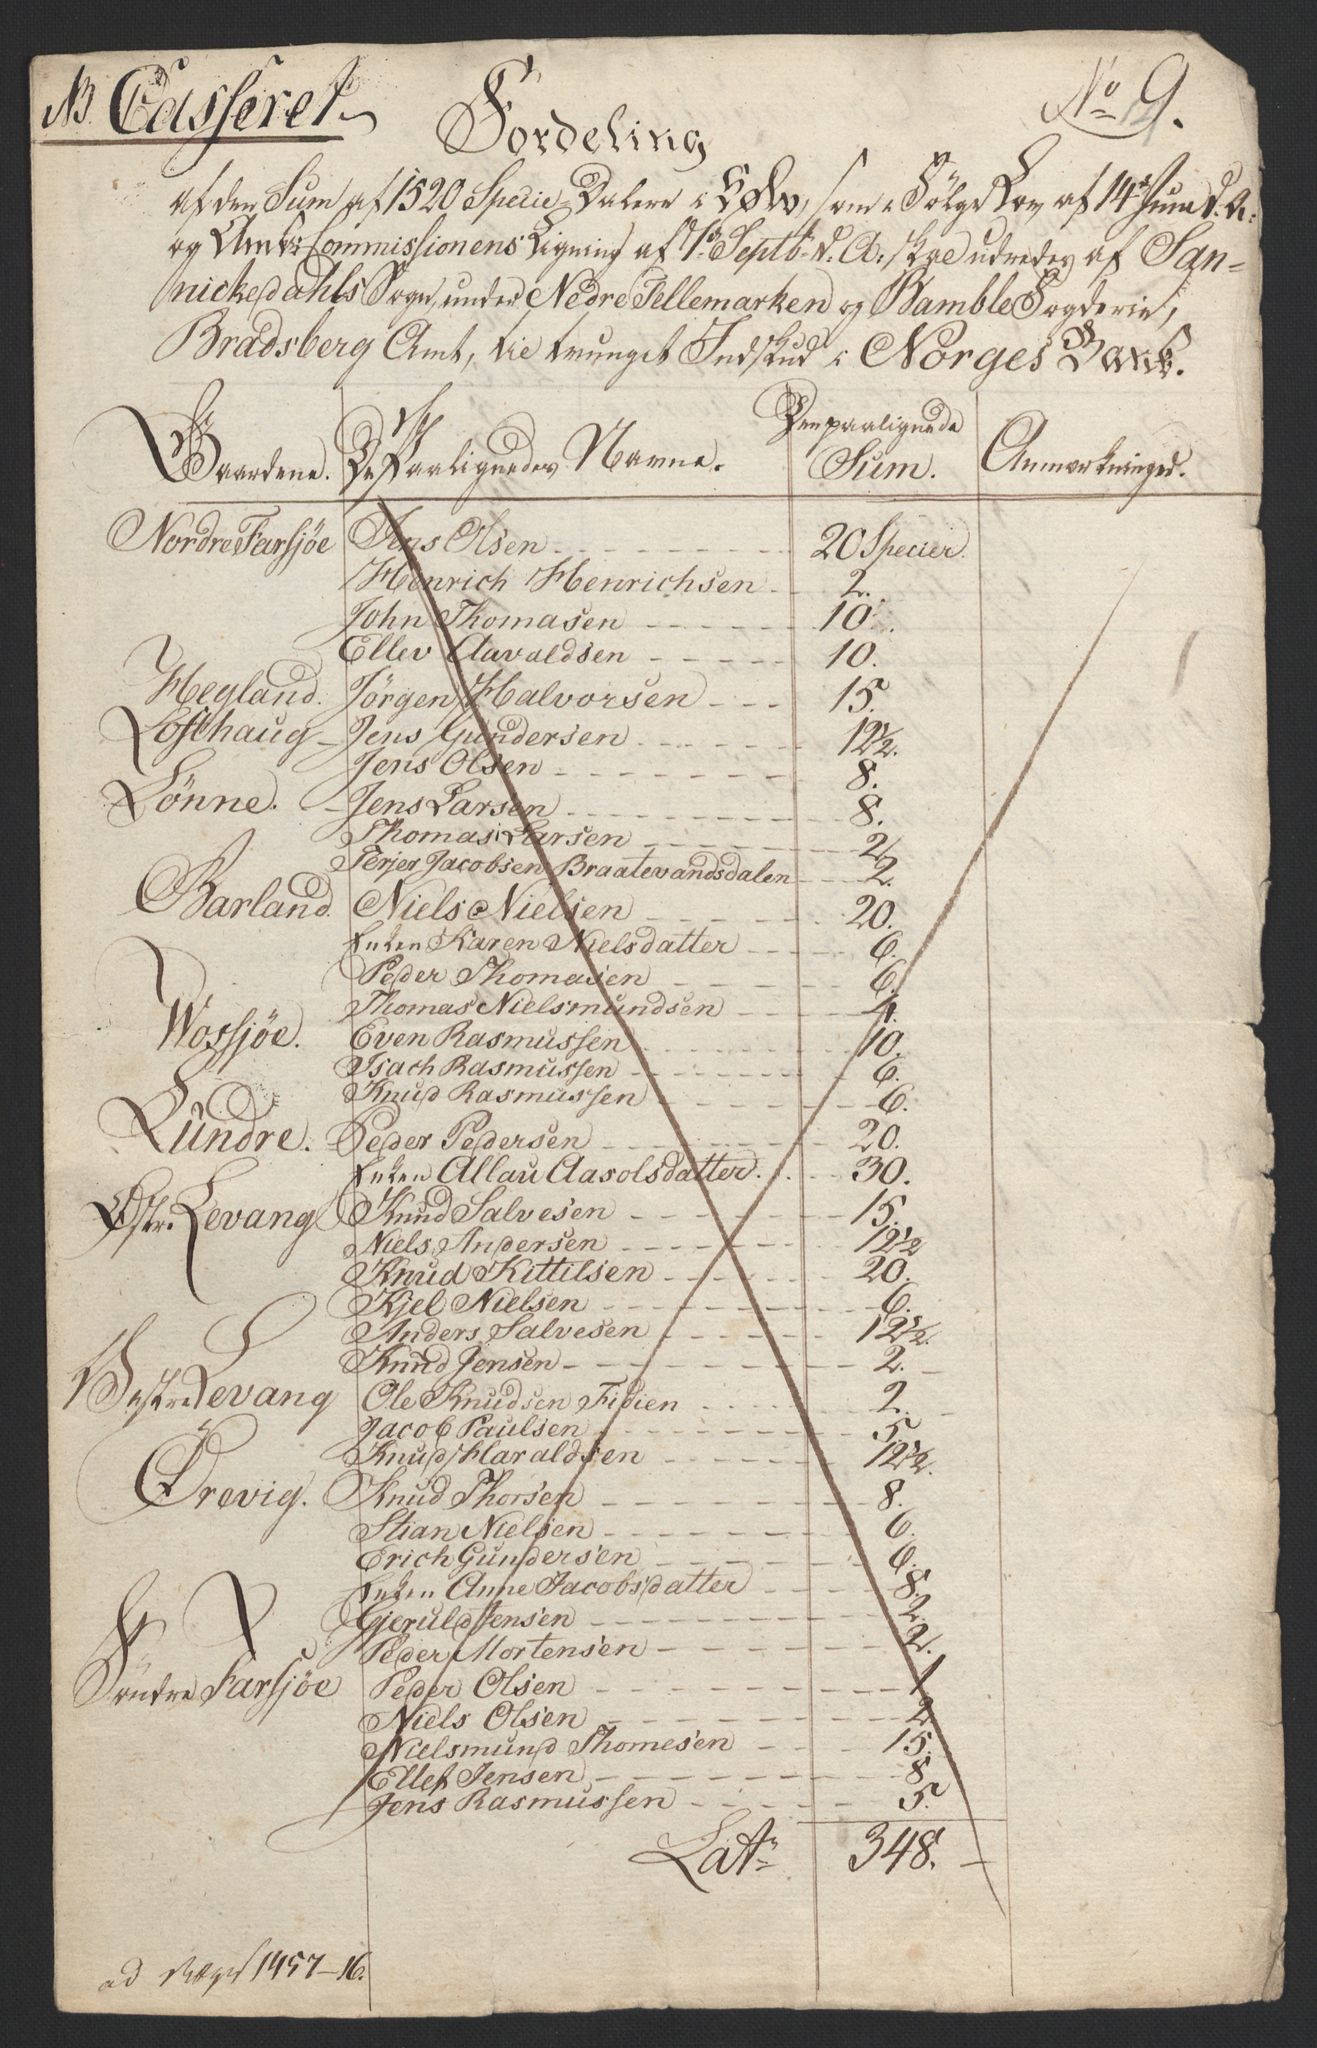 NB Casseret
No 9.
Fordeling
af den Sum af 1520 Specie-Dalere i Sølv, som i Følge Lov af 14de Juni d. A:
og Amts Commissionens Ligning af 7de Septb. d. A: skal udredes af San-
nickedahls Sogn, under Nedre Tellemarken og Bamble Fogderie,
Bradsberg Amt, til tvunget Indskud i Norges Bank.
Gaardene. De Paalignedes Navne. Den paalignede Sum. Anmærkninger.
Nordre Farsjøe Jens Olsen 20 Specier.
Henrich Henrichsen 2.
John Thomasen 10.
Ellev Aavaldsen 10.
Hegland. Jörgen Halvorsen 15.
Lofthaug Jens Gundersen 12 1/2.
Jens Olsen 8.
Lönne. Jens Larsen 8.
Thomas Larsen 2
Terjer Jacobsen Braatevandsdalen 2.
Barland. Niels Nielsen 20.
Enken Karen Nielsdatter 6.
Peder Thomasen 6.
Thomas Nielsmundsen 4.
Wossjöe. Even Rasmussen 10.
Isach Rasmussen 6.
Knud Rasmussen 6.
Lundre. Peder Pedersen 20.
Enken Allau Aasolsdatter. 30.
Østre Levang Knud Salvesen 15.
Niels Andersen 12 1/2
Knud Kittilsen 20.
Kjel Nielsen 6.
Anders Salvesen 12 1/2.
Knud Jensen 2.
Vestre Levang Ole Knudsen Fidien 2.
Jacob Paulsen 5.
Knud Haraldsen 12 1/2.
Örevig. Knud Thorsen 8.
Stian Nielsen 6.
Erich Gundersen 6.
Enken Anne Jacobsdatter 8.
Gjeruld Jensen 2.
Peder Mortensen 2.
Söndre Farsjöe Peder Olsen 1
Niels Olsen 2
Nielsmund Thomesen 15.
Ellef Jensen 8
Jens Rasmussen 5.
Lats 348.
ad 1457-16.